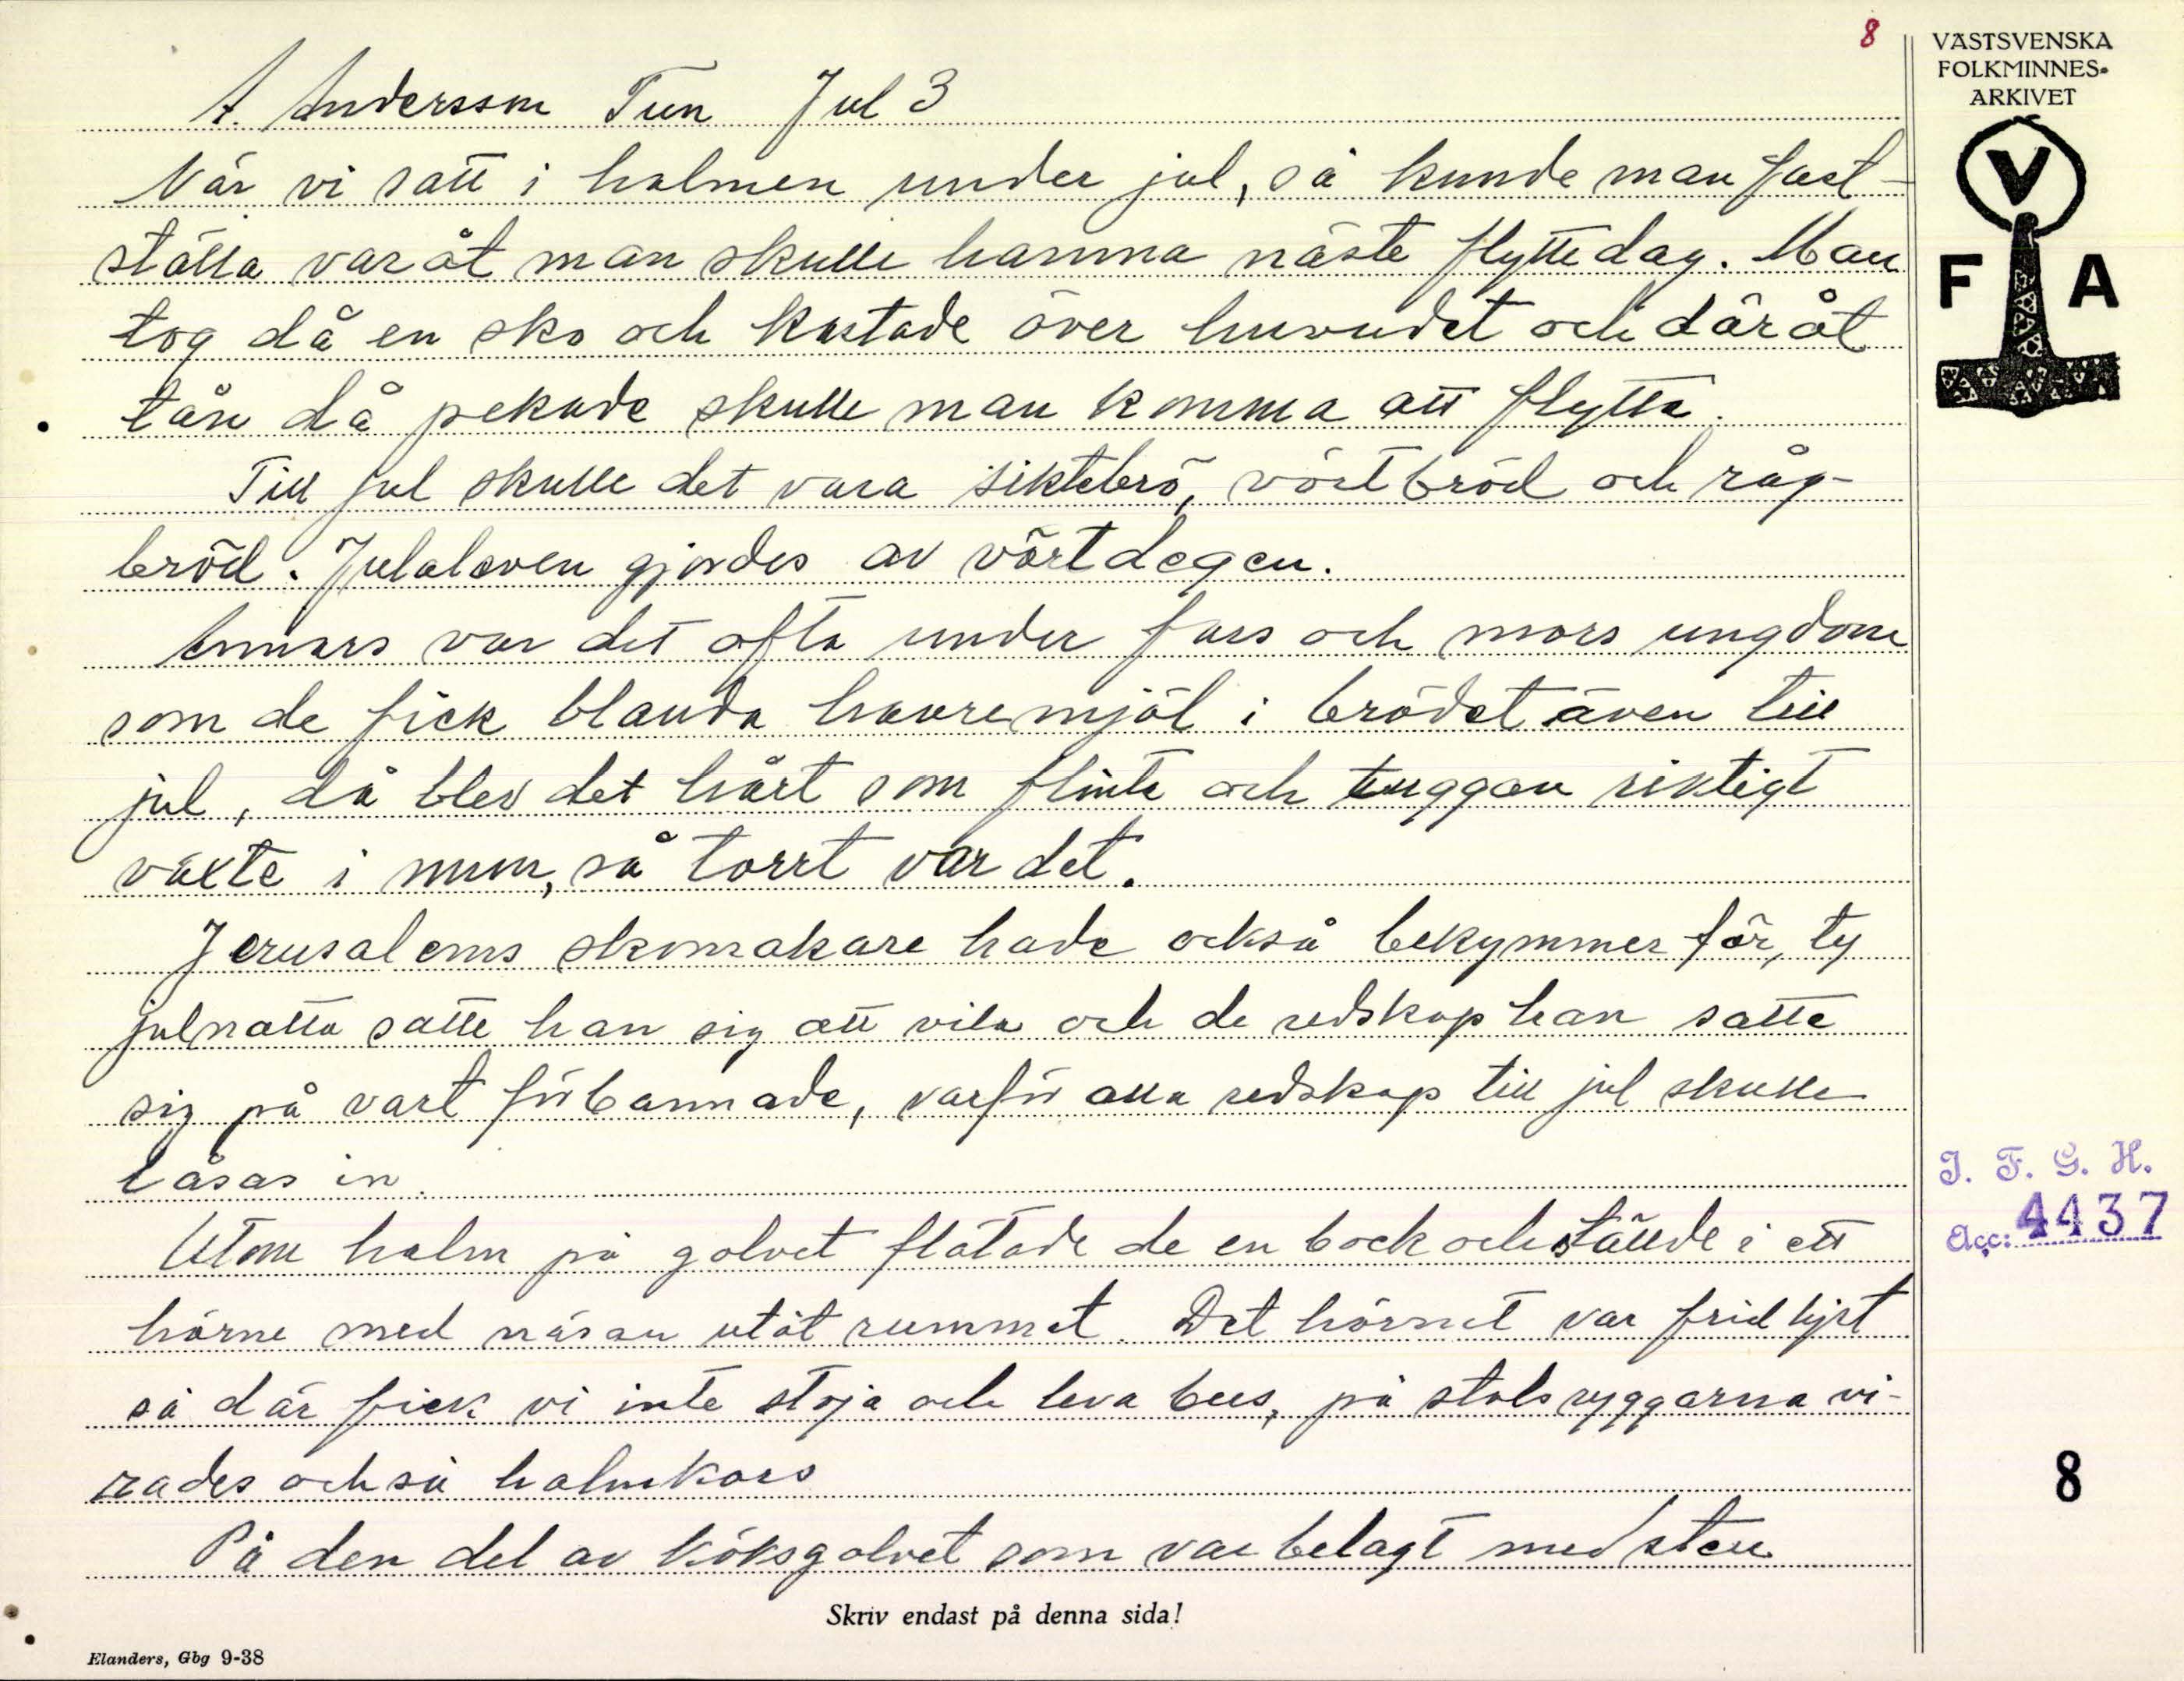 8
VÄSTSVENSKA
FOLKMINNES-
ARKIVET
V
F A
A. Andersson Tun Jul 3
När vi satt i halmen under jul, så kunde man fast-
ställa varåt man skulle hamna näste flyttedag. Man
tog då en sko och kastade över huvudet och däråt
tån då pekade skulle man komma att flytta.
Till jul skulle det vara siktebrö, vörtbröd och råg-
bröd. Julaleven gjordes av vörtdegen.
Annars var det ofta under fars och mors ungdom
som de fick blanda havremjöl i brödet även till
jul, då blev det hårt som flinta och tuggan riktigt
växte i mun, så torrt var det.
Jerusalems skomakare hade också bekymmer för, ty
julnatta satte han sig att vila och de redskap han satte
sig på vart förbannade, varför alla redskap till jul skulle
låsas in.
Utom halm på golvet flätade de en bock och ställde i ett
hörne med näsan utåt rummet. Det hörnet var fridlyst
så där fick vi inte stoja och leva bus, på stolsryggarna vi-
rades också halmkors
På den del av köksgolvet som var belagt med sten
Skriv endast på denna sida!
Elanders, Gbg 9-38
I. F. G. H.
Acc: 4437
8